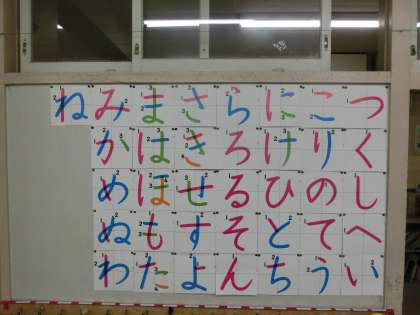 つくしへい
こりのてう
にけひとち
らろるそん
さきせすよ
まはほもた
みかめぬわ
ね